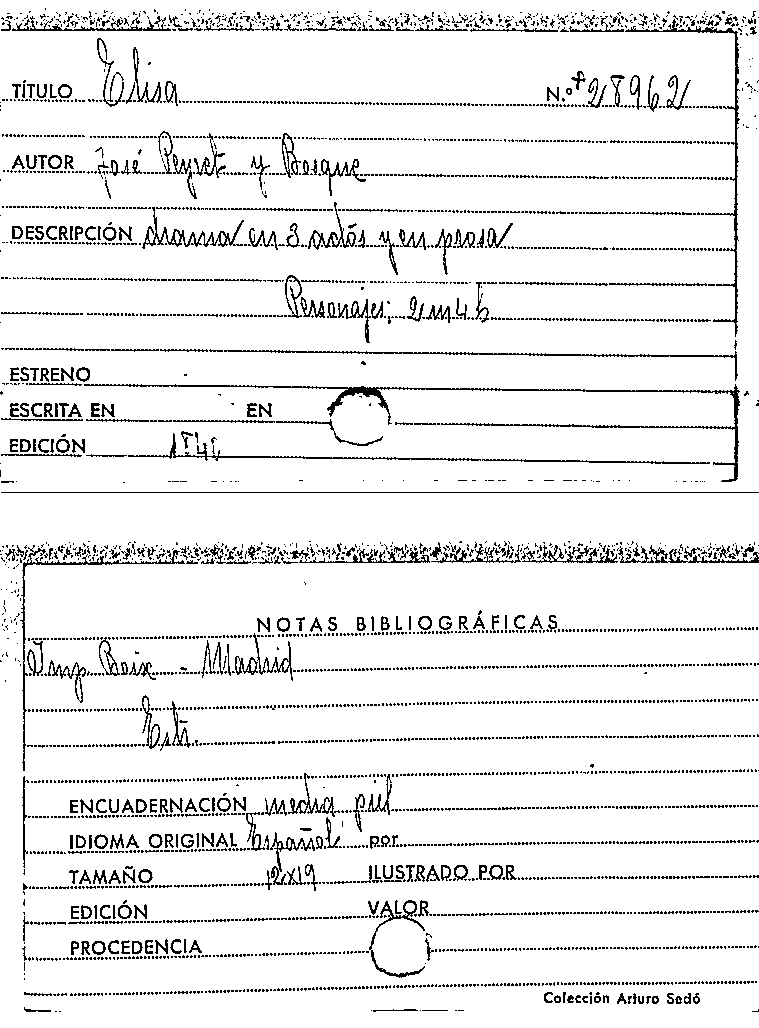 TÍTULO Elisa N.º +28962
AUTOR José Peyret y Bosque
DESCRIPCIÓN drama en 3 actos y en prosa
Personajes: 2 m 4 h
ESTRENO
ESCRITA EN EN
EDICIÓN
NOTAS BIBLIOGRÁFICAS
Imp Boix - Madrid
Estr.
ENCUADERNACIÓN media piel
IDIOMA ORIGINAL Español por
TAMAÑO 12x19 ILUSTRADO POR
EDICIÓN VALOR
PROCEDENCIA
Colección Arturo Sedó